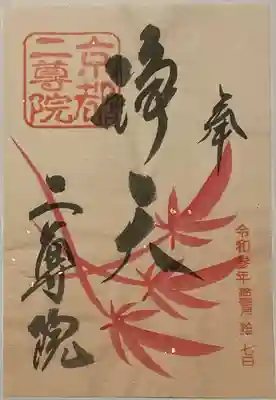 奉
令和参年拾壱月拾七日
二尊院
京都
二尊院